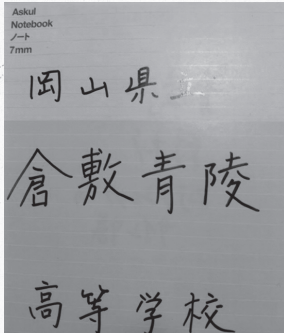 Askul
Notebook
ノート
7mm
岡山県
倉敷青陵
高等学校